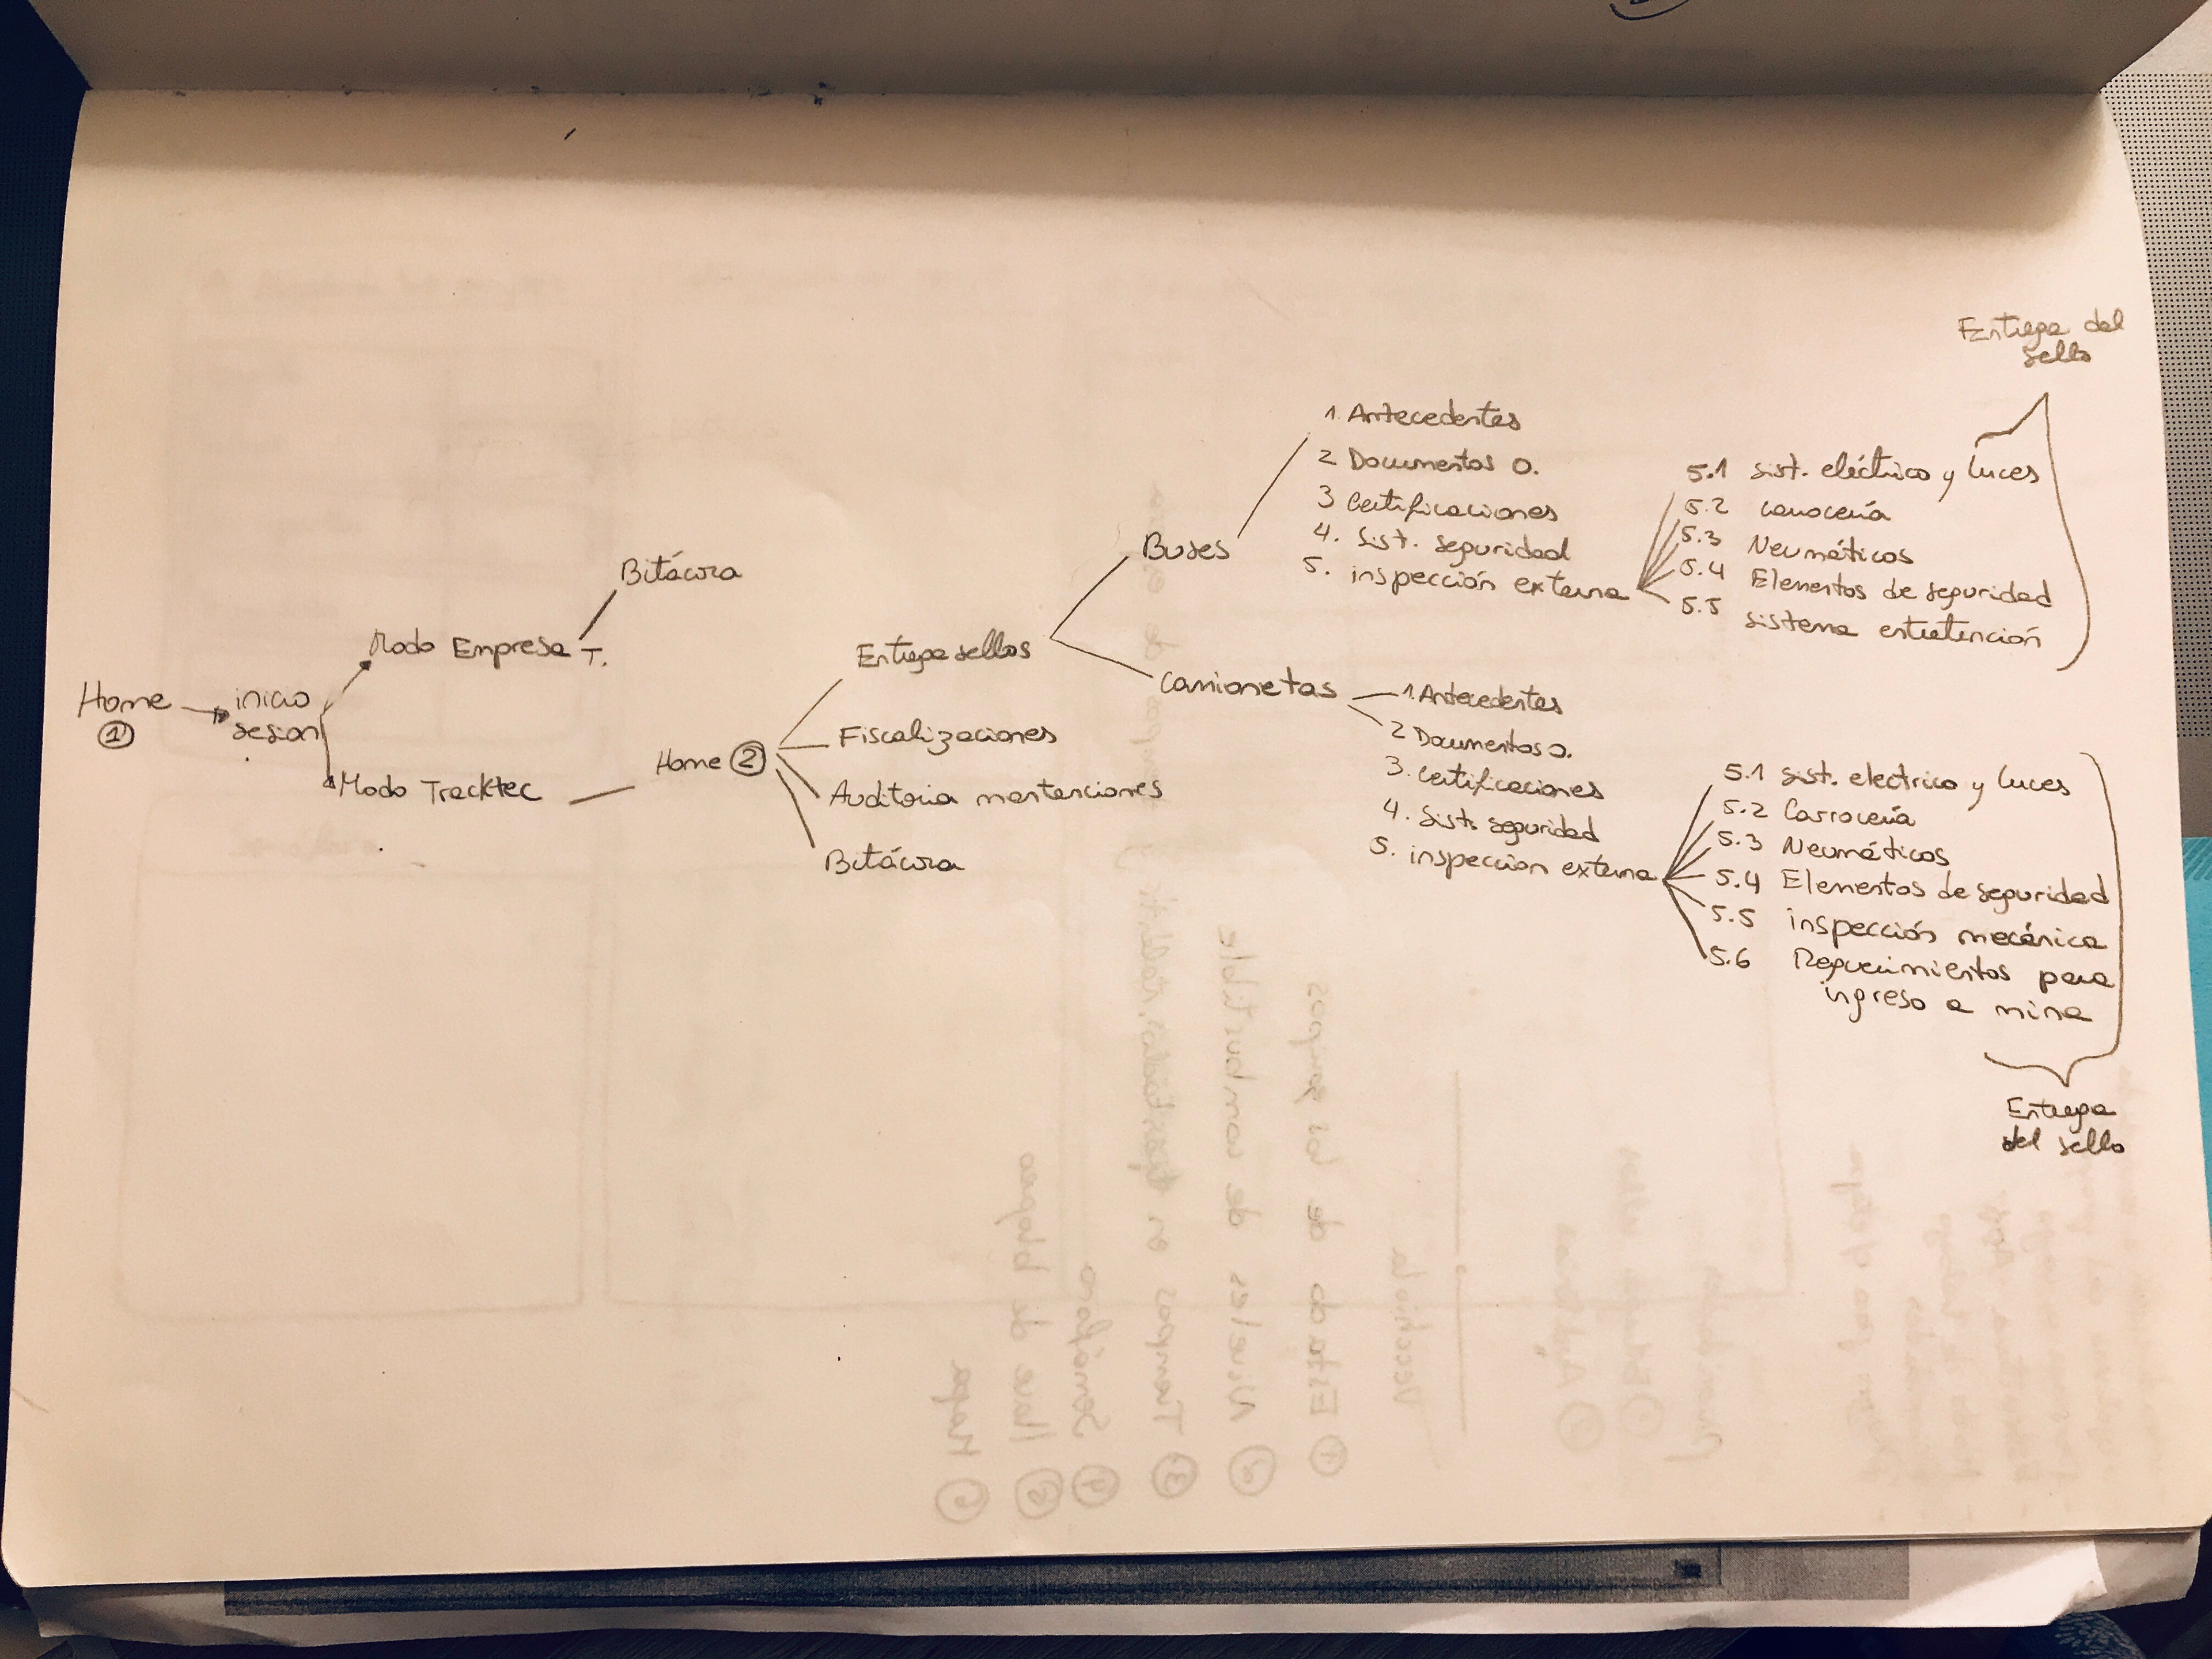 Home
①
inicio
sesion
Modo Empresa T.
Bitácora
Modo Tracktec
Home ②
Entrega sellos
Fiscalizaciones
Auditoria mantenciones
Bitácora
Buses
1. Antecedentes
2 Documentos O.
3 Certificaciones
4. Sist. seguridad
5. inspección externa
5.1 sist. eléctrico y luces
5.2 carrocería
5.3 Neumáticos
5.4 Elementos de seguridad
5.5 sistema entretención
Entrega del
sello
Camionetas
1. Antecedentes
2 Documentos O.
3. Certificaciones
4. Sist. seguridad
5. inspeccion externa
5.1 sist. electrico y luces
5.2 Carrocería
5.3 Neumáticos
5.4 Elementos de seguridad
5.5 inspección mecánica
5.6 Requerimientos para
ingreso a mina
Entrega
del sello